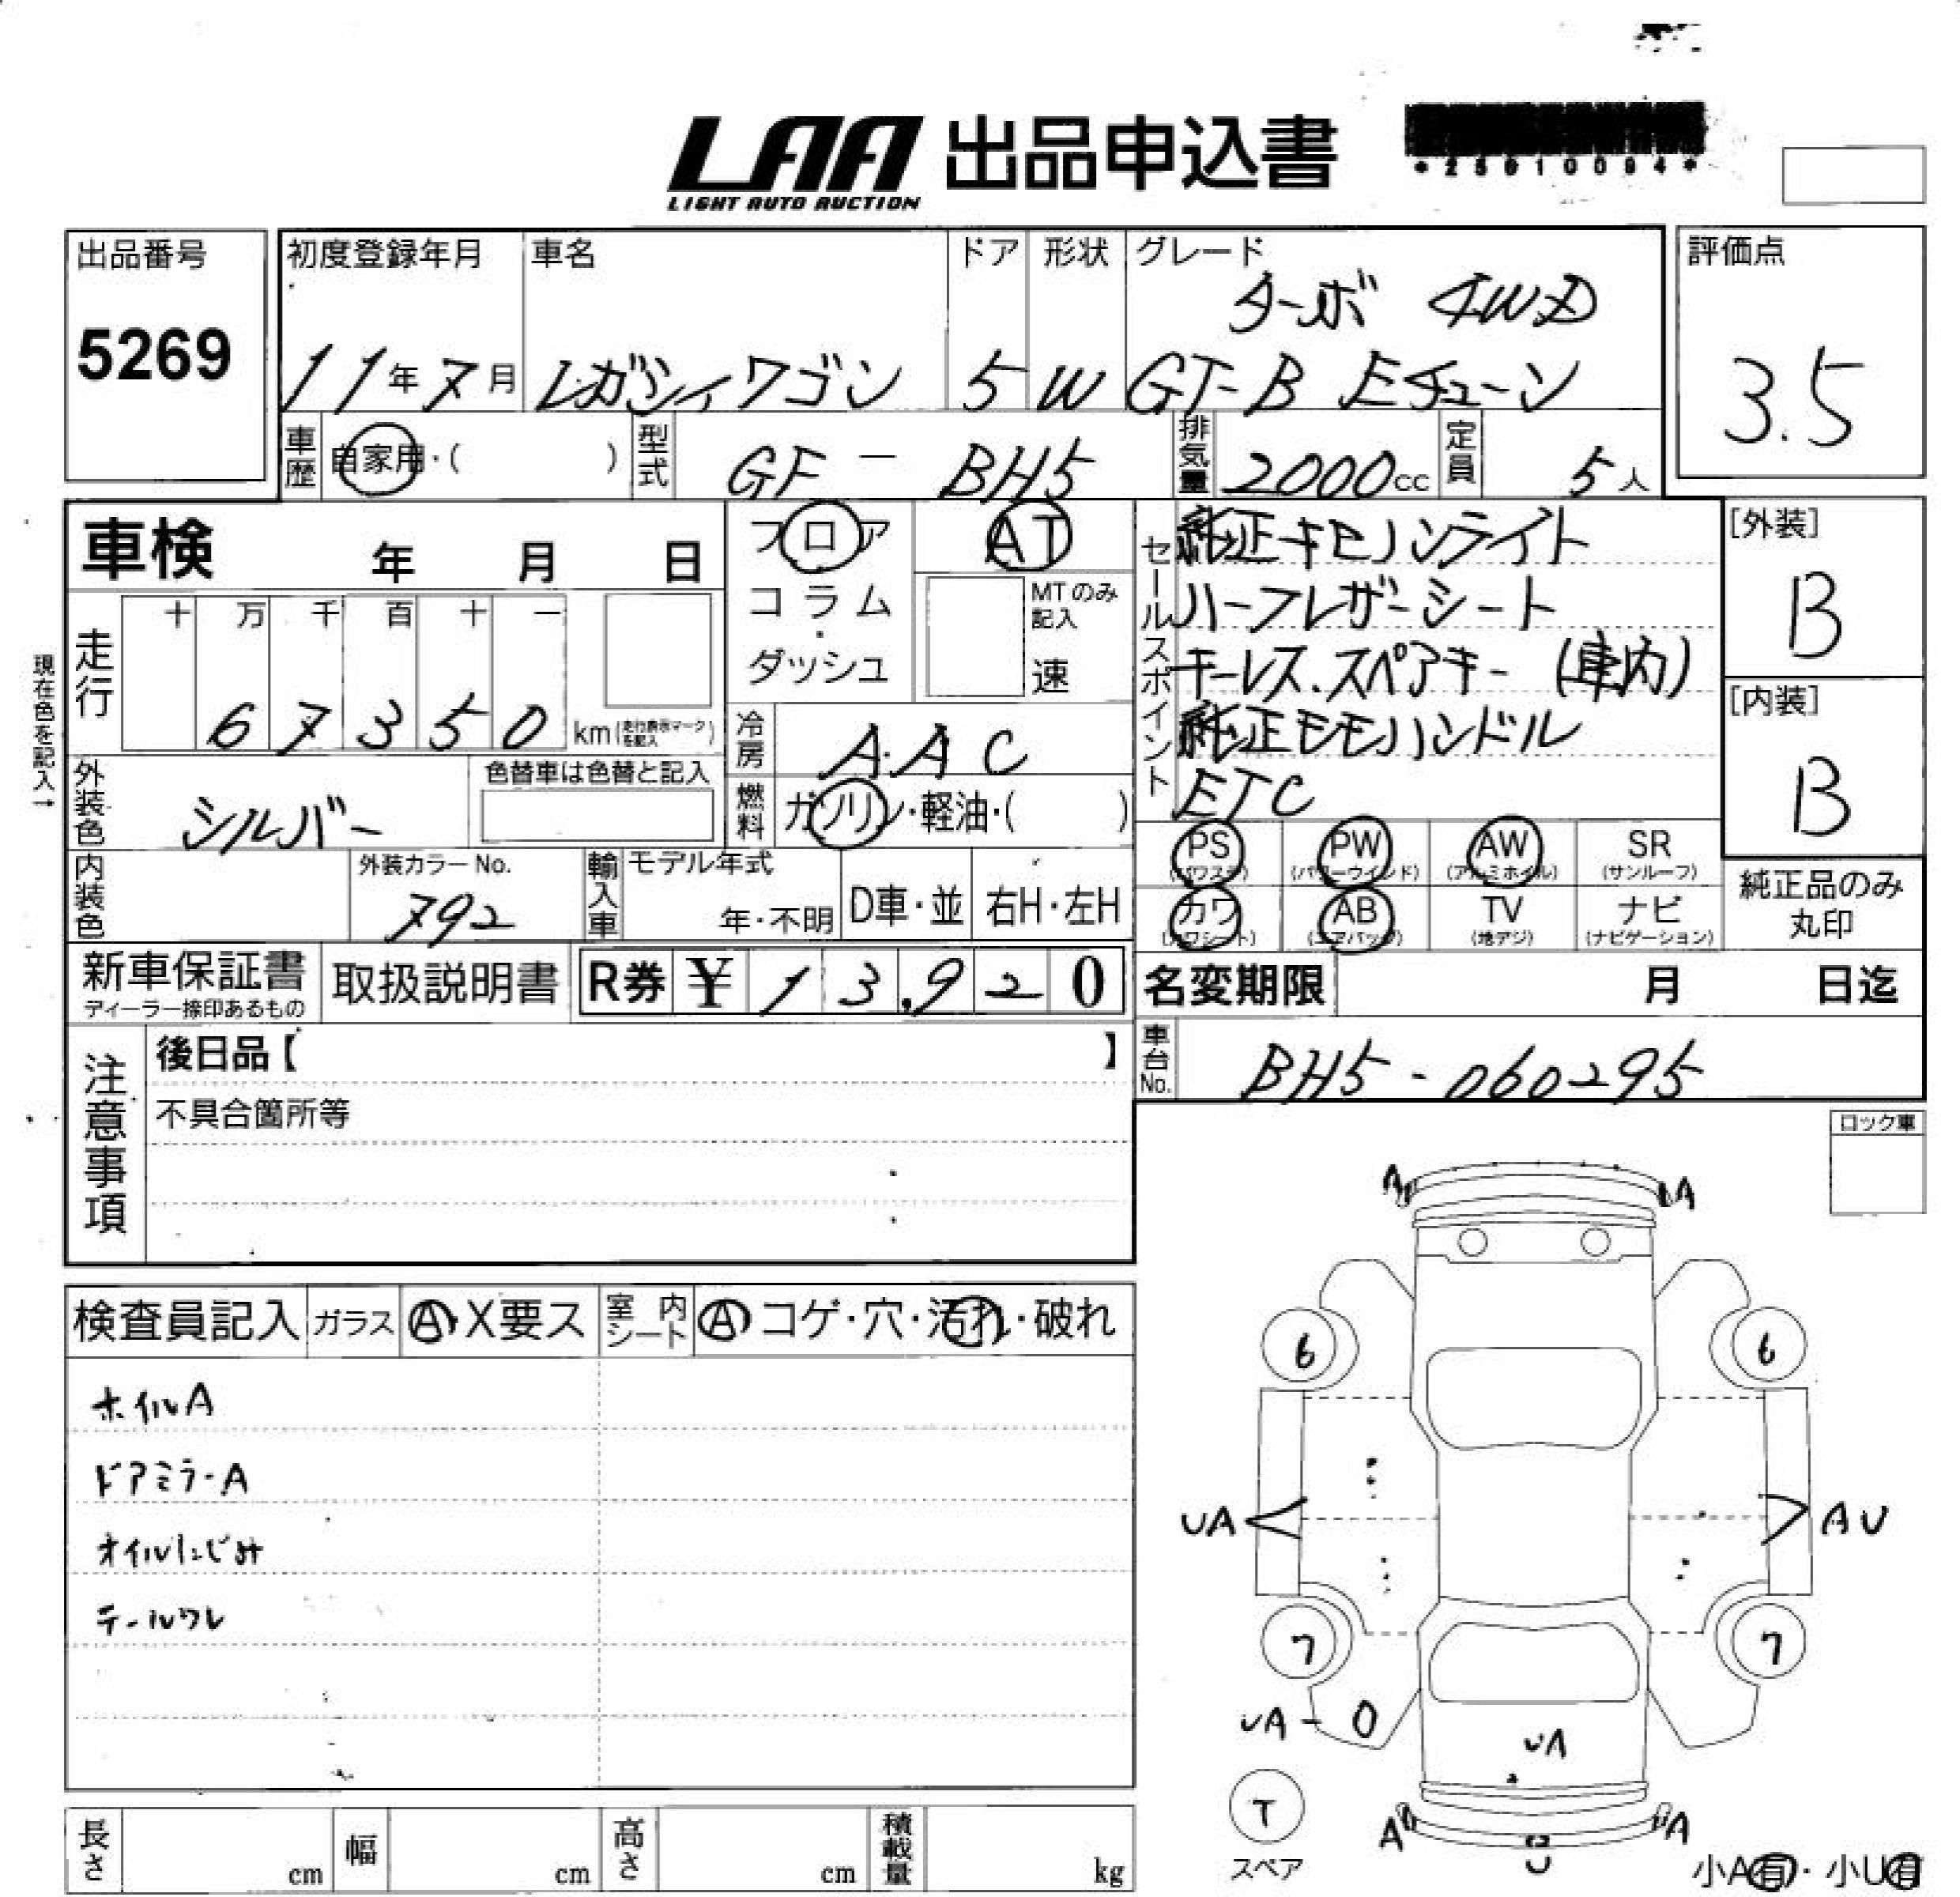 LAA 出品申込書
LIGHT AUTO AUCTION
*25010094*
出品番号
5269
初度登録年月
11年7月
車名
レガシィワゴン
ドア
5
形状
W
グレード
ターボ 4WD
GT-B Eチューン
評価点
3.5
車歴
自家用・( )
型式
GF - BH5
排気量
2000cc
定員
5人
車検 年 月 日
フロア
コラム
・
ダッシュ
AT
MTのみ
記入
速
セールスポイント
純正キセノンライト
ハーフレザーシート
キーレス.スペアキー (車内)
純正モモハンドル
ETC
[外装]
B
[内装]
B
現在色を記入→
走行
十 万 千 百 十 一
6 7 3 5 0 km(走行表示マークを記入)
冷房
A.A C
燃料
ガソリン・軽油・( )
外装色
シルバー
色替車は色替と記入
PS
(パワステ)
PW
(パワーウインド)
AW
(アルミホイル)
SR
(サンルーフ)
カワ
(カワシート)
AB
(エアバッグ)
TV
(地デジ)
ナビ
(ナビゲーション)
純正品のみ
丸印
内装色
外装カラーNo.
792
輸入車
モデル年式
年・不明
D車・並
右H・左H
新車保証書
ディーラー捺印あるもの
取扱説明書
R券 ¥ 1 3,9 2 0
名変期限 月 日迄
車台No.
BH5-060295
注意事項
後日品【 】
不具合箇所等
ロック車
検査員記入
ガラス
A・X要ス
室内シート
A・コゲ・穴・汚れ・破れ
ホイルA
ドアミラーA
オイルにじみ
テールワレ
A
A
6
6
UA
AU
7
7
UA - 0
UA
T
スペア
A
A
U
小A有・小U有
長さ cm
幅 cm
高さ cm
積載量 kg